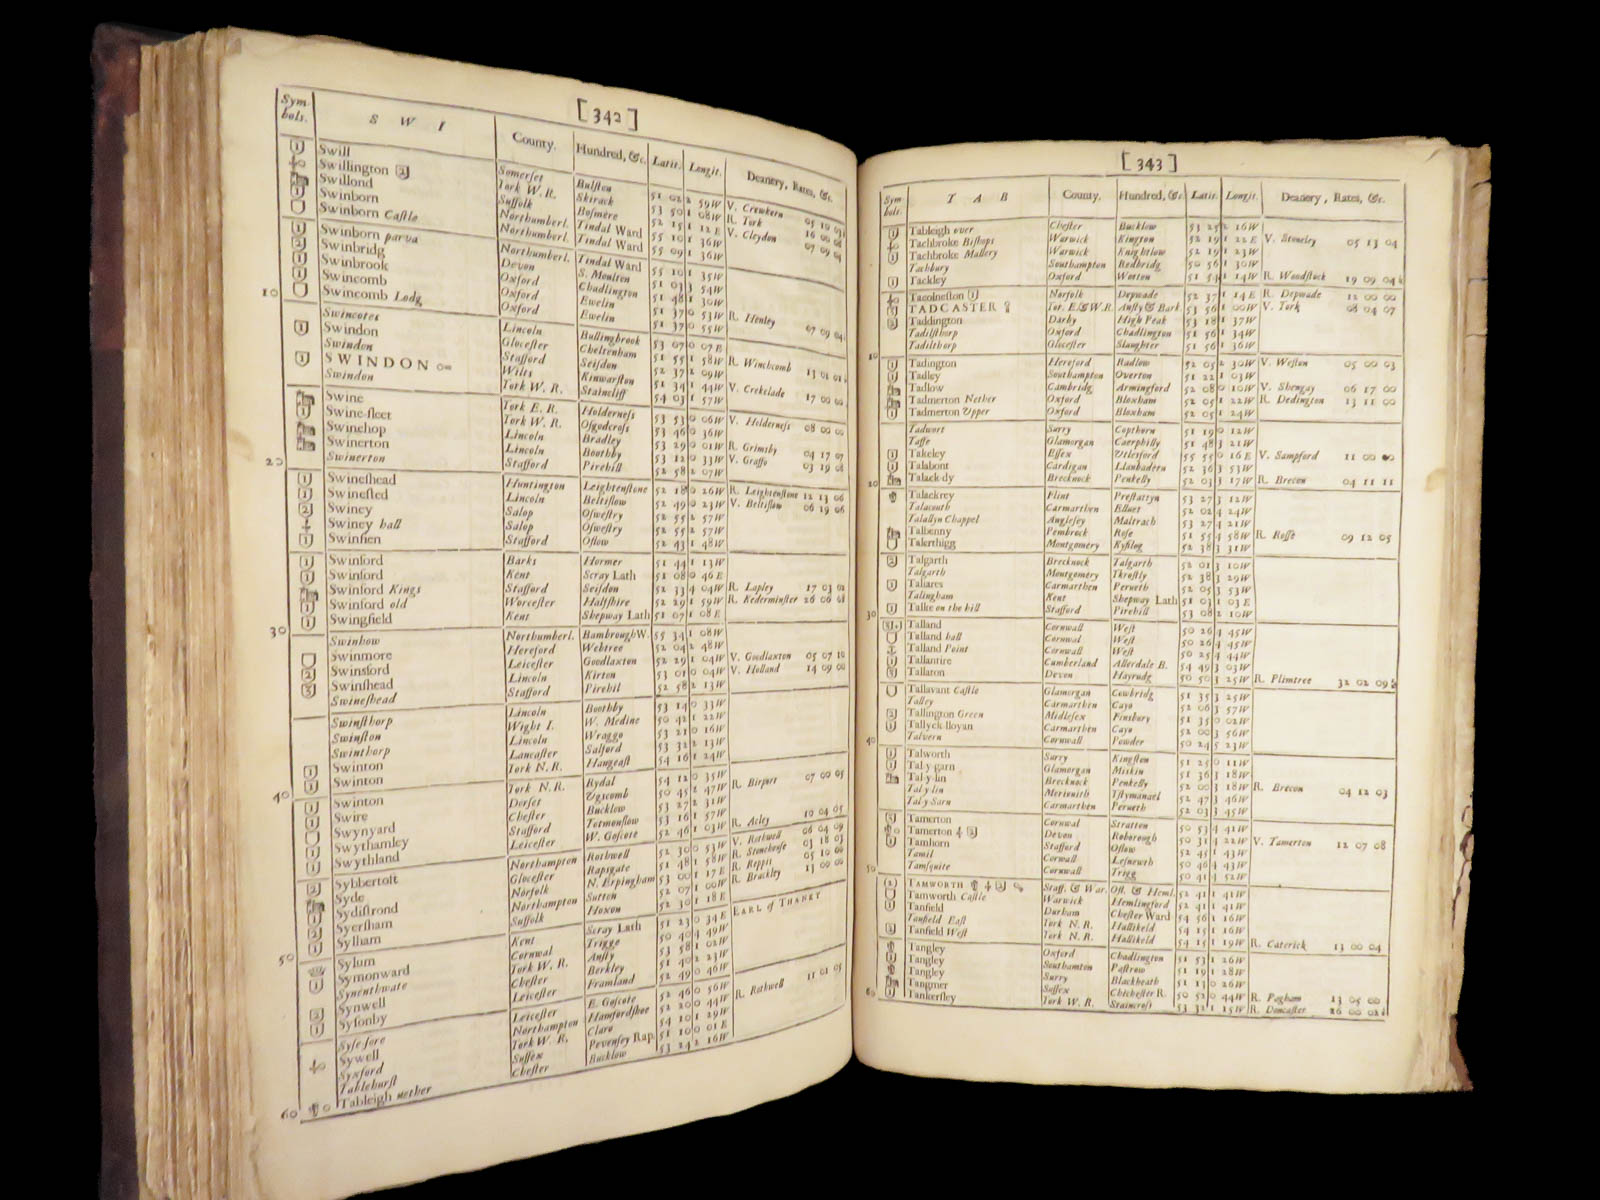 [342]
Symbols. S W I County. Hundred, &c. Latit. Longit. Deanery, Rates, &c.
Swill Somerſet Bulſton 51 02 2 59W V. Crewkern 05 19 03
Swillington York W. R. Skirack 53 50 1 08W R. York 16 00 08
Swillond Suffolk Boſmere 52 15 1 12E V. Cleydon 07 09 04
Swinborn Northumberl. Tindal Ward 55 10 1 36W
Swinborn Caſtle Northumberl. Tindal Ward 55 09 1 36W
Swinborn parva Northumberl. Tindal Ward 55 10 1 35W
Swinbridg Devon S. Moulton 51 03 3 54W
Swinbrook Oxford Chadlington 51 48 1 30W
Swincomb Oxford Ewelin 51 37 0 53W R. Henley 07 09 04
10 Swincomb Lodg Oxford Ewelin 51 37 0 55W
Swincotes Lincoln Bullingbrook 53 07 0 07E
Swindon Gloceſter Cheltenham 51 55 1 58W R. Winchcomb 13 01 01
Swindon Stafford Seiſdon 52 37 2 09W
SWINDON Wilts Kinwarſton 51 34 1 44W V. Crekelade 17 00 00
Swindon York W. R. Staincliff 54 03 1 57W
Swine York E. R. Holderneſs 53 53 0 06W V. Holderneſs 08 00 00
Swine-fleet York W. R. Oſgodcroſs 53 46 0 36W
Swinehop Lincoln Bradley 53 29 0 01W R. Grimsby 04 17 07
Swinerton Lincoln Boothby 53 12 0 33W V. Graffo 03 19 08
20 Swinerton Stafford Pirehill 52 58 2 07W
Swineſhead Huntington Leightenſtone 52 18 0 26W R. Leightenſtone 12 13 06
Swineſted Lincoln Beltiſlow 52 49 0 23W V. Beltiſlow 06 19 06
Swiney Salop Oſweſtry 52 55 2 57W
Swiney hall Salop Oſweſtry 52 55 2 57W
Swinfen Stafford Offlow 52 43 1 48W
Swinford Barks Hormer 51 44 1 13W
Swinford Kent Scray Lath 51 08 0 46E
Swinford Kings Stafford Seiſdon 52 33 4 04W R. Lapley 17 03 02
Swinford old Worceſter Halfſhire 52 29 1 59W R. Kederminſter 26 06 08
30 Swingfield Kent Shepway Lath 51 07 1 08E
Swinhow Northumberl. BambroughW. 55 34 1 08W
Swinmore Hereford Webtree 52 04 2 48W
Swinsford Leiceſter Goodlaxton 52 29 1 04W V. Goodlaxton 05 07 10
Swinſhead Lincoln Kirton 53 01 0 04W V. Holland 14 09 00
Swineſhead Stafford Pirehil 52 58 2 13W
Swinſthorp Lincoln Boothby 53 14 0 33W
Swinſton Wight I. W. Medine 50 42 1 22W
Swinthorp Lincoln Wraggo 53 21 0 16W
Swinton Lancaſter Salford 53 32 2 13W
40 Swinton York N. R. Hangeaſt 54 16 1 24W
Swinton York N. R. Rydal 54 12 0 35W
Swire Dorſet Ugscomb 50 45 2 47W R. Birport 07 00 05
Swynyard Cheſter Bucklow 53 27 2 31W
Swythamley Stafford Totmonſlow 53 16 1 57W
Swythland Leiceſter W. Goſcote 52 46 1 03W R. Acley 10 04 05
Sybbertoft Northampton Rothwell 52 30 0 53W V. Rothwell 06 04 09
Syde Gloceſter Rapsgate 51 48 1 58W R. Stonehouſe 03 18 03
Sydiſtrond Norfolk N. Erpingham 53 00 1 17E R. Reppis 05 10 00
Syerſham Northampton Sutton 52 07 1 00W R. Brackley 13 00 00
50 Sylham Suffolk Hoxon 52 30 1 18E
Sylum Kent Scray Lath 51 23 0 34E EARL of THANET
Symonward Cornwal Trigge 50 40 4 49W
Synenthwate York W. R. Anſty 53 58 1 02W
Synwell Cheſter Berkley 51 40 2 23W
Syſonby Leiceſter Framland 52 49 0 46W
Syſefore Leiceſter E. Goſcote 52 46 0 56W
Sywell Northampton Hamfordſhoe 52 20 0 44W R. Rothwell 11 01 05
Syxford York W. R. Claro 54 10 1 29W
Tablehurſt Suſſex Pevenſey Rap. 51 10 0 01E
60 Tableigh nether Cheſter Bucklow 53 24 2 16W
[343]
Symbols. T A B County. Hundred, &c. Latit. Longit. Deanery, Rates, &c.
Tableigh over Cheſter Bucklow 53 25 2 16W
Tachbroke Biſhops Warwick Kington 52 19 1 22E V. Stoneley 05 13 04
Tachbroke Mallery Warwick Knightlow 52 19 1 23W
Tachbury Southampton Redbridg 50 56 1 30W
Tackley Oxford Wotton 51 54 1 14W R. Woodſtock 19 09 04
Tacolneſton Norfolk Depwade 52 37 1 14E R. Depwade 12 00 00
TADCASTER Yor. E.&W.R. Anſty & Bark. 53 56 1 00W V. York 08 04 07
Taddington Darby High Peak 53 18 1 37W
Tadilſthorp Oxford Chadlington 51 56 1 34W
10 Tadilthorp Gloceſter Slaughter 51 56 1 36W
Tadington Hereford Radlow 52 05 2 30W V. Weſton 05 00 03
Tadley Southampton Overton 51 22 1 03W
Tadlow Cambridg Armingford 52 08 0 10W V. Shengay 06 17 00
Tadmerton Nether Oxford Bloxham 52 05 1 22W R. Dedington 13 11 00
Tadmerton Upper Oxford Bloxham 52 05 1 24W
Tadwort Surry Copthorn 51 19 0 12W
Taffe Glamorgan Caerphilly 51 48 3 21W
Takeley Eſſex Utleſford 55 55 0 16E V. Sampford 11 00 00
Talabont Cardigan Llanbadern 52 36 3 53W
20 Talack-dy Brecnock Penkelly 52 03 3 17W R. Brecon 04 11 11
Talackrey Flint Preſtattyn 53 27 3 12W
Talacouth Carmarthen Elluet 52 02 4 24W
Talallyn Chappel Angleſey Maltrach 53 27 4 21W
Talbenny Pembrock Roſe 51 55 4 58W R. Roſſe 09 12 05
Talerthigg Montgomery Kyfilog 52 38 3 31W
Talgarth Brecnock Talgarth 52 01 3 10W
Talgarth Montgomery 52 38 3 29W
Taliares Carmarthen Perueth 52 05 3 53W
Talingham Kent Shepway Lath 51 03 1 03E
30 Talke on the hill Stafford Pirehill 53 08 2 10W
Talland Cornwall Weſt 50 26 4 45W
Talland hall Cornwal Weſt 50 26 4 45W
Talland Point Cornwall Weſt 50 25 4 44W
Tallantire Cumberland Allerdale B. 54 49 3 03W
Tallaton Devon Hayrudg 50 50 3 25W R. Plimtree 32 02 09
Tallavant Caſtle Glamorgan Cowbridg 51 35 3 25W
Talley Carmarthen Cayo 52 06 3 57W
Tallington Green Midleſex Finsbury 51 35 0 02W
Tallyck-lloyan Carmarthen Cayo 52 00 3 56W
40 Talvern Cornwall Powder 50 24 5 23W
Talworth Surry Kingſton 51 25 0 11W
Tal-y-garn Glamorgan Miskin 51 36 3 18W
Tal-y-lin Brecknock Penkelly 52 00 3 18W R. Brecon 04 12 03
Tal-y-lin Merionith 52 47 3 46W
Tal-y Sarn Carmarthen Perueth 52 03 3 45W
Tamerton Cornwal Stratton 50 53 4 41W
Tamerton Devon Roborough 50 31 4 22W V. Tamerton 12 07 08
Tamhorn Stafford Oflow 52 45 1 43W
Tamil Cornwall Leſneuth 50 46 4 43W
50 Tamſquite Cornwall Trigg 50 41 4 52W
TAMWORTH Staff. & War. Ofl. & Heml. 52 41 1 41W
Tamworth Caſtle Warwick Hemlingford 52 41 1 41W
Tanfield Durham Cheſter Ward 54 56 1 16W
Tanfield Eaſt York N. R. Hallikeld 54 15 1 16W
Tanfield Weſt York N. R. Hallikeld 54 15 1 19W R. Caterick 13 00 04
Tangley Oxford Chadlington 51 53 1 26W
Tangley Southamton Paſtrow 51 19 1 28W
Tangley Surry Blackheath 51 13 0 26W
Tangmer Suſſex Chicheſter R. 50 52 0 44W R. Pagham 13 05 00
60 Tankerſley York W. R. Staincroſs 53 31 1 15W R. Doncaſter 26 00 02